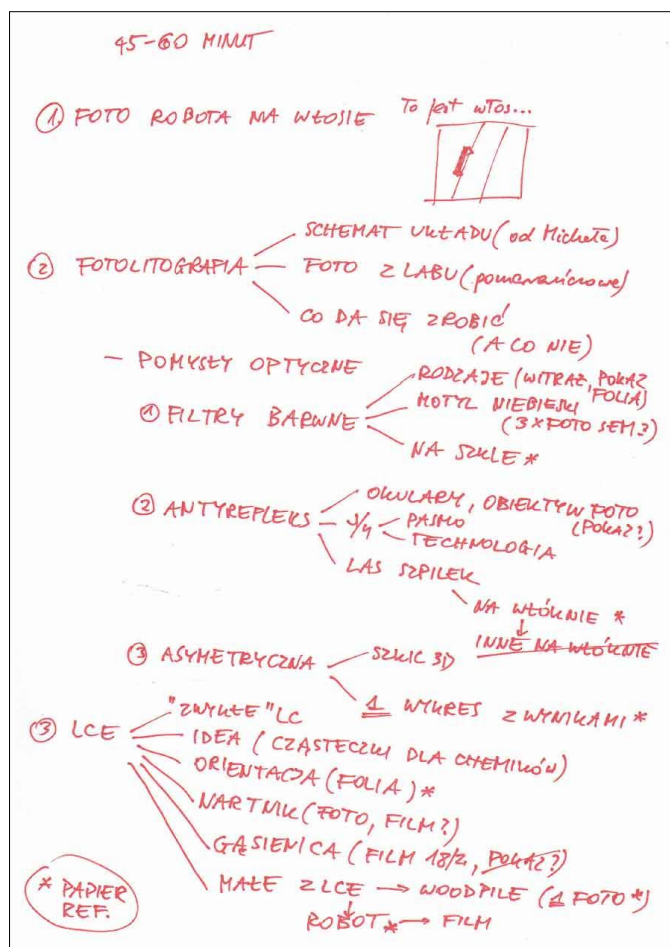 45-60 MINUT
① FOTO ROBOTA NA WŁOSIE To jest włos...
SCHEMAT UKŁADU (od Michała)
② FOTOLITOGRAFIA FOTO Z LABU (pomarańczowe)
CO DA SIĘ ZROBIĆ
(A CO NIE)
- POMYSŁY OPTYCZNE
RODZAJE (WITRAŻ, POKAZ
FOLIA)
① FILTRY BARWNE MOTYL NIEBIESKI
(3 x FOTO SEM?)
NA SZKLE *
OKULARY, OBIEKTYW FOTO
(POKAZ?)
② ANTYREFLEKS λ/4 PASMO
TECHNOLOGIA
LAS SZPILEK
NA WŁÓKNIE *
INNE NA WŁÓKNIE
③ ASYMETRYCZNA SZKIC 3D
1 WYKRES Z WYNIKAMI *
"ZWYKŁE" LC
③ LCE IDEA (CZĄSTECZKI DLA CHEMIKÓW)
ORIENTACJA (FOLIA) *
NARTNIK (FOTO, FILM?)
GĄSIENICA (FILM 18/2, POKAZ?)
MAŁE Z LCE → WOODPILE (1 FOTO *)
ROBOT * → FILM
* PAPIER
REF.